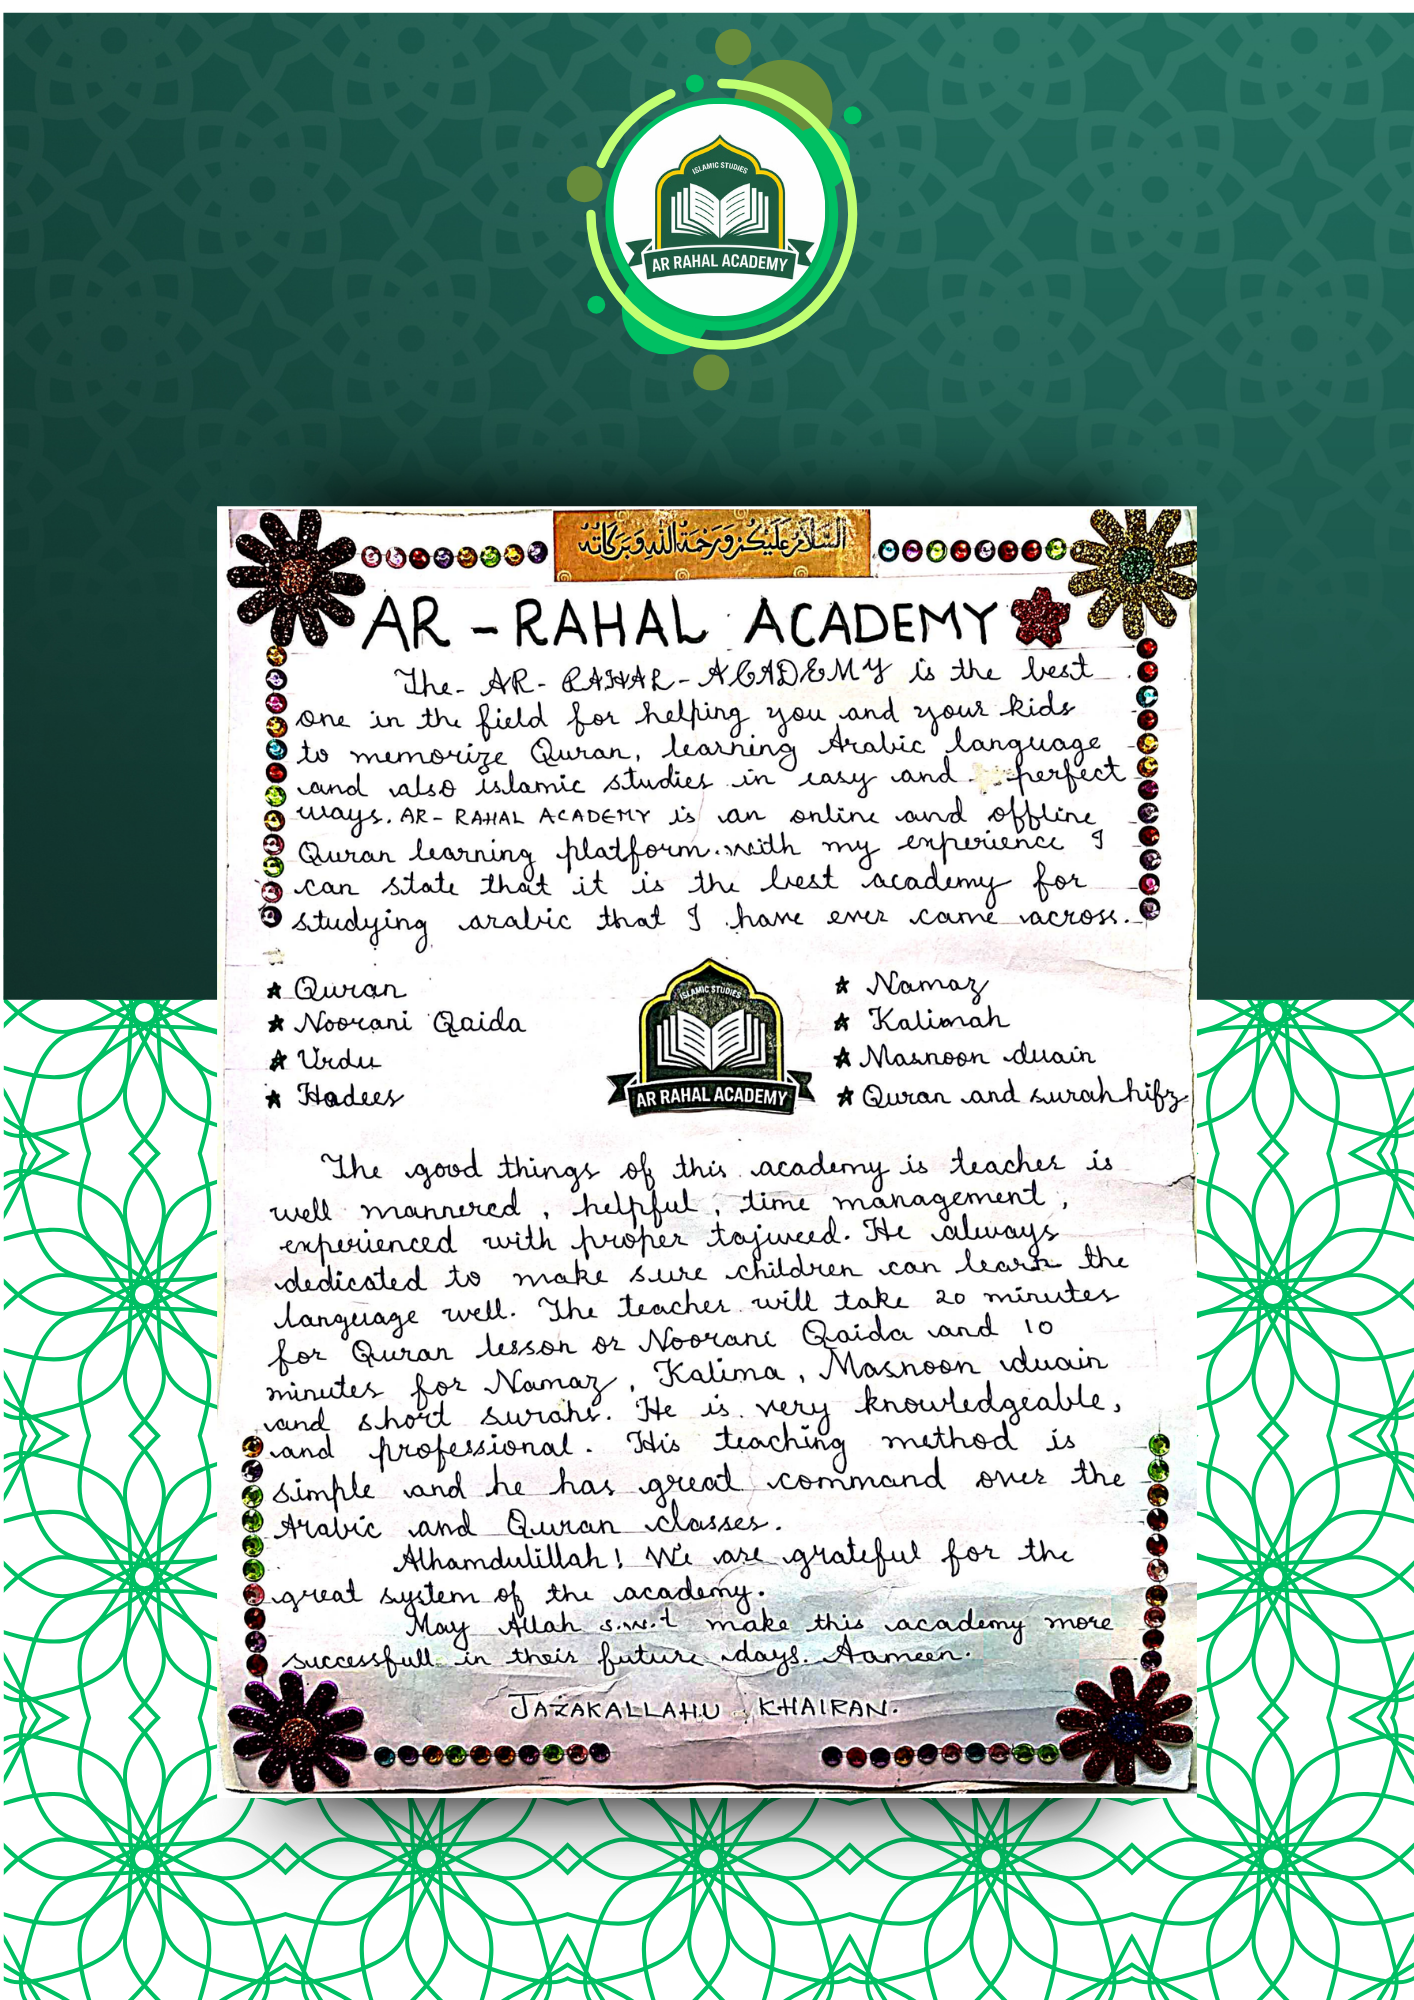 ISLAMIC STUDIES
AR RAHAL ACADEMY
السَّلَامُ عَلَيْكُمْ وَرَحْمَةُ اللهِ وَبَرَكَاتُهُ
AR - RAHAL ACADEMY
The - AR - RAHAL - ACADEMY is the best
one in the field for helping you and your kids
to memorize Quran, learning Arabic language
and also islamic studies in easy and perfect
ways. AR - RAHAL ACADEMY is an online and offline
Quran learning platform. with my experience I
can state that it is the best academy for
studying arabic that I have ever came across.
★ Quran
★ Noorani Qaida
★ Urdu
★ Hadees
ISLAMIC STUDIES
AR RAHAL ACADEMY
★ Namaz
★ Kalimah
★ Masnoon duain
★ Quran and surah hifz
The good things of this academy is teacher is
well mannered, helpful, time management,
experienced with proper tajweed. He always
dedicated to make sure children can learn the
language well. The teacher will take 20 minutes
for Quran lesson or Noorani Qaida and 10
minutes for Namaz, Kalima, Masnoon duain
and short surahs. He is very knowledgeable,
and professional. His teaching method is
simple and he has great command over the
Arabic and Quran classes.
Alhamdulillah! We are grateful for the
great system of the academy.
May Allah s.w.t make this academy more
successfull in their future days. Aameen.
JAZAKALLAHU KHAIRAN.